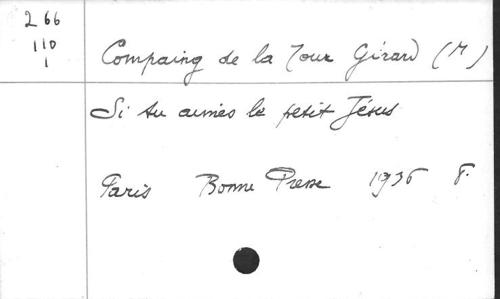 266
110
1
Compaing de la Tour Girard (M)
Si tu aimes le petit Jésus
Paris Bonne Presse 1936 F.